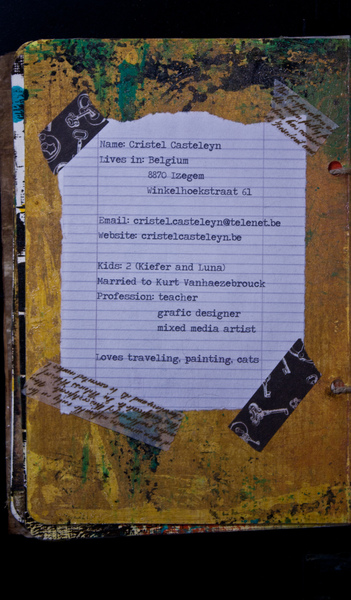 Name: Cristel Casteleyn
Lives in: Belgium
8870 Izegem
Winkelhoekstraat 61
Email: cristel.casteleyn@telenet.be
Website: cristelcasteleyn.be
Kids: 2 (Kiefer and Luna)
Married to Kurt Vanhaezebrouck
Profession: teacher
grafic designer
mixed media artist
Loves traveling, painting, cats